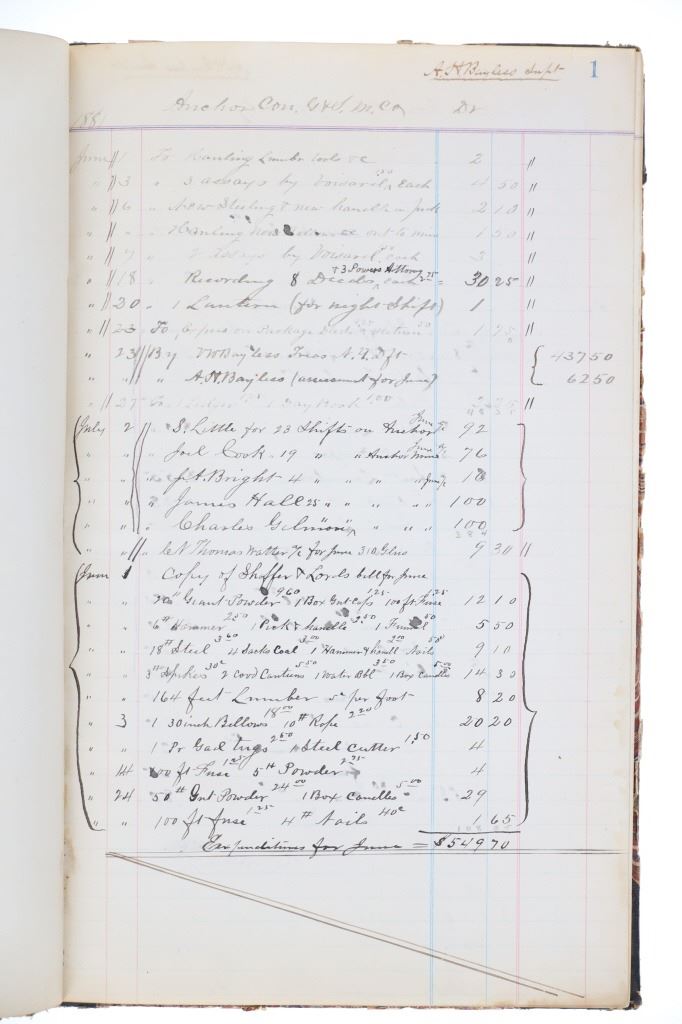 A. H. Bayless Supt 1
Anchor Con. G & S. M. Co Dr
1881
June // 1 To Hauling Lumber tools &c 2 //
" // 3 " 3 assays by Voisard 1.50 each 4 50 //
" // 6 " New Steeling & new handle in pick 2 10 //
" // " " Hauling out to mine 1 50 //
" // 7 " 2 assays by Voisard each 3 //
" // 18 " Recording 8 Deeds, & 3 Powers Attorney each 2.75 = 30 25 //
" // 20 " 1 Lantern (for night Shift) 1 //
" // 23 To Express on Package 1 25 //
" 23 // By W Bayless Treas N.Y. Dft 437 50
" " // " A. H. Bayless (assessment for June) 62 50
" // 27 To 1 Ledger 1 Day Book 1.00 //
July 2 // " S. Little for 23 Shifts on Anchor June 92
" " " Joel Cook 19 " " Anchor Mine 76
" " " J. A. Bright 4 " " " 16
" " " James Hall 25 " " " " 100
" " " Charles Gilmor " " " " 100
" " // " C N Thomas Water for June 310 Gals 9 30 //
June 1 Copy of Shoffer & Lords bill for June
" " Giant Powder 9.60 1 Box Gnt Caps 1.25 100 ft Fuse 1.25 12 10
" " 6# Hammer 2.50 1 Pick & Handle 2.50 1 Funnel 50 5 50
" " 18# Steel 3.60 4 Sacks Coal 3.00 1 Hammer & handl 2.00 Nails 50 9 10
" " 3# Spikes 30c 2 Covd Canteens 5.50 1 Water Bbl 3.50 1 Box Candles 5.00 14 30
" " 164 feet Lumber 5c per foot 8 20
" 3 1 30 inch Bellows 18.00 10# Rope 2.20 20 20
" " 1 Pr Gad Tugs 2.50 1 Steel Cutter 1.50 4
" 14 100 ft Fuse 1.25 5# Powder 2.75 4
" 24 50# Gnt Powder 24.00 1 Box Candles 5.00 29
" " 100 ft fuse 1.25 4# Nails 40c 1 65
Expenditures for June = $549 70